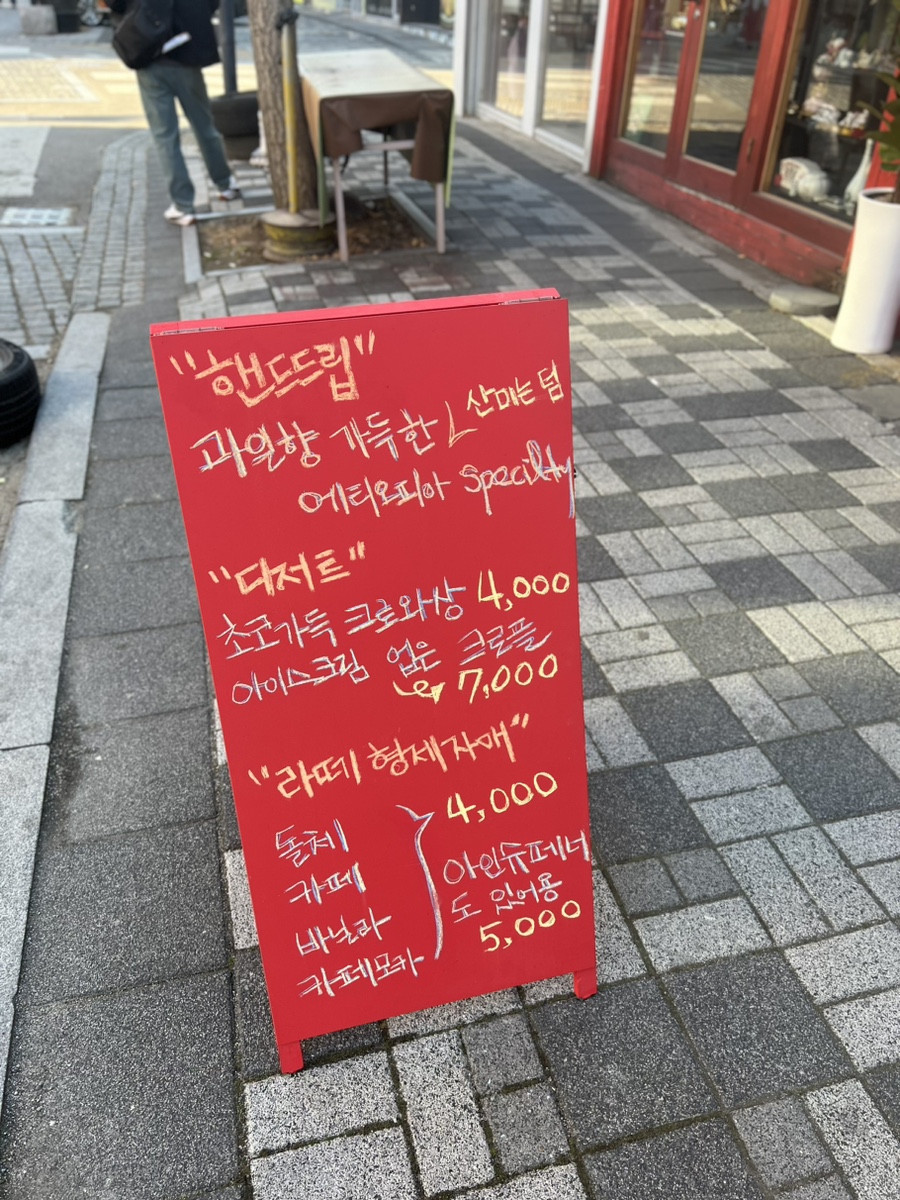 "핸드드립"
과일향 가득한 산미는 덤
에티오피아 Specilty
"디저트"
초코가득 크로와상 4,000
아이스크림 얹은 크로플
7,000
"라떼 형제자매"
돌체
카페
바닐라
카페모카
4,000
아인슈페너
도 있어용
5,000